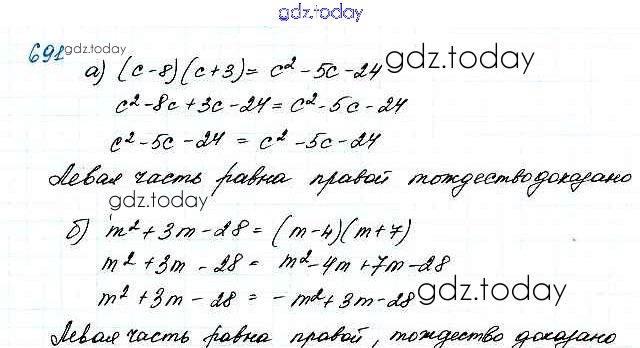 gdz.today
691 gdz.today
а) (c-8)(c+3) = c² - 5c - 24 gdz.today
c² - 8c + 3c - 24 = c² - 5c - 24
c² - 5c - 24 = c² - 5c - 24
Левая часть равна правой тождество доказано
gdz.today
б) m² + 3m - 28 = (m-4)(m+7)
m² + 3m - 28 = m² - 4m + 7m - 28
m² + 3m - 28 = - m² + 3m - 28 gdz.today
Левая часть равна правой, тождество доказано